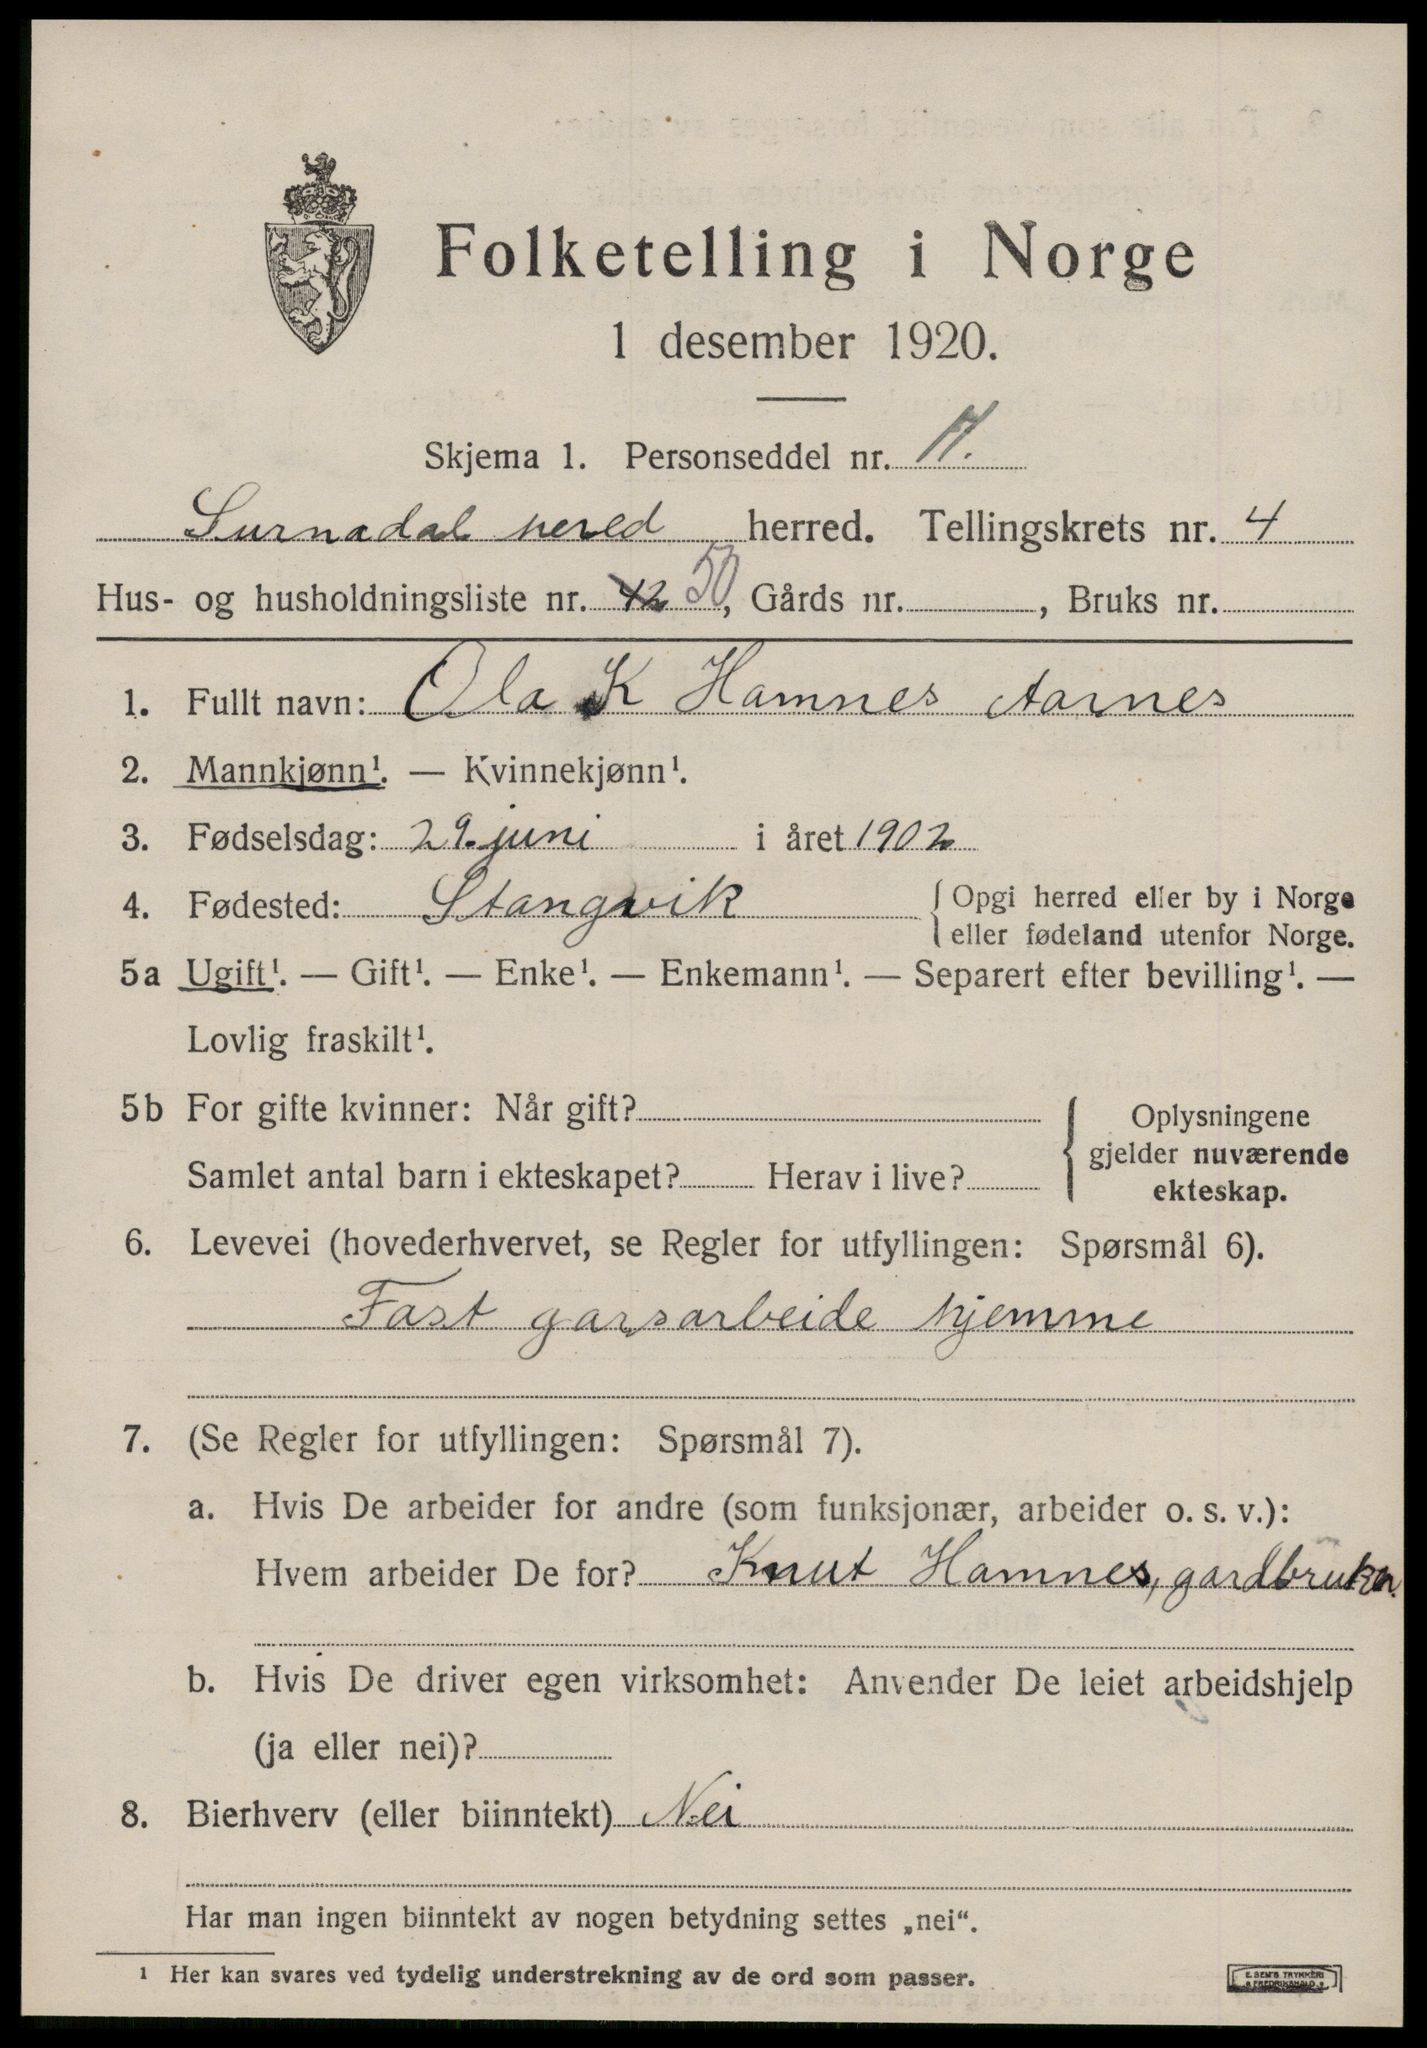 Folketelling i Norge
1 desember 1920.
Skjema 1. Personseddel nr.
Surnadal hered herred. Tellingskrets nr. 4
Hus- og husholdningsliste nr. 42 50, Gårds nr. , Bruks nr.
1. Fullt navn: Ola K Hamnes Aarnes
2. Mannkjønn¹. — Kvinnekjønn¹.
3. Fødselsdag: 29. juni i året 1902
4. Fødested: Stangvik Opgi herred eller by i Norge
eller fødeland utenfor Norge.
5a Ugift¹. — Gift¹. — Enke¹. — Enkemann¹. — Separert efter bevilling¹. —
Lovlig fraskilt¹.
5b For gifte kvinner: Når gift? Oplysningene
gjelder nuværende
Samlet antal barn i ekteskapet? Herav i live? ekteskap.
6. Levevei (hovederhvervet, se Regler for utfyllingen: Spørsmål 6).
Fast garsarbeide hjemme
7. (Se Regler for utfyllingen: Spørsmål 7).
a. Hvis De arbeider for andre (som funksjonær, arbeider o. s. v.):
Hvem arbeider De for? Knut Hamnes, gardbruker.
b. Hvis De driver egen virksomhet: Anvender De leiet arbeidshjelp
(ja eller nei)?
8. Bierhverv (eller biinntekt) Nei
Har man ingen biinntekt av nogen betydning settes „nei“.
¹ Her kan svares ved tydelig understrekning av de ord som passer.
E. SEM'S TRYKKERI
FREDRIKSHALD